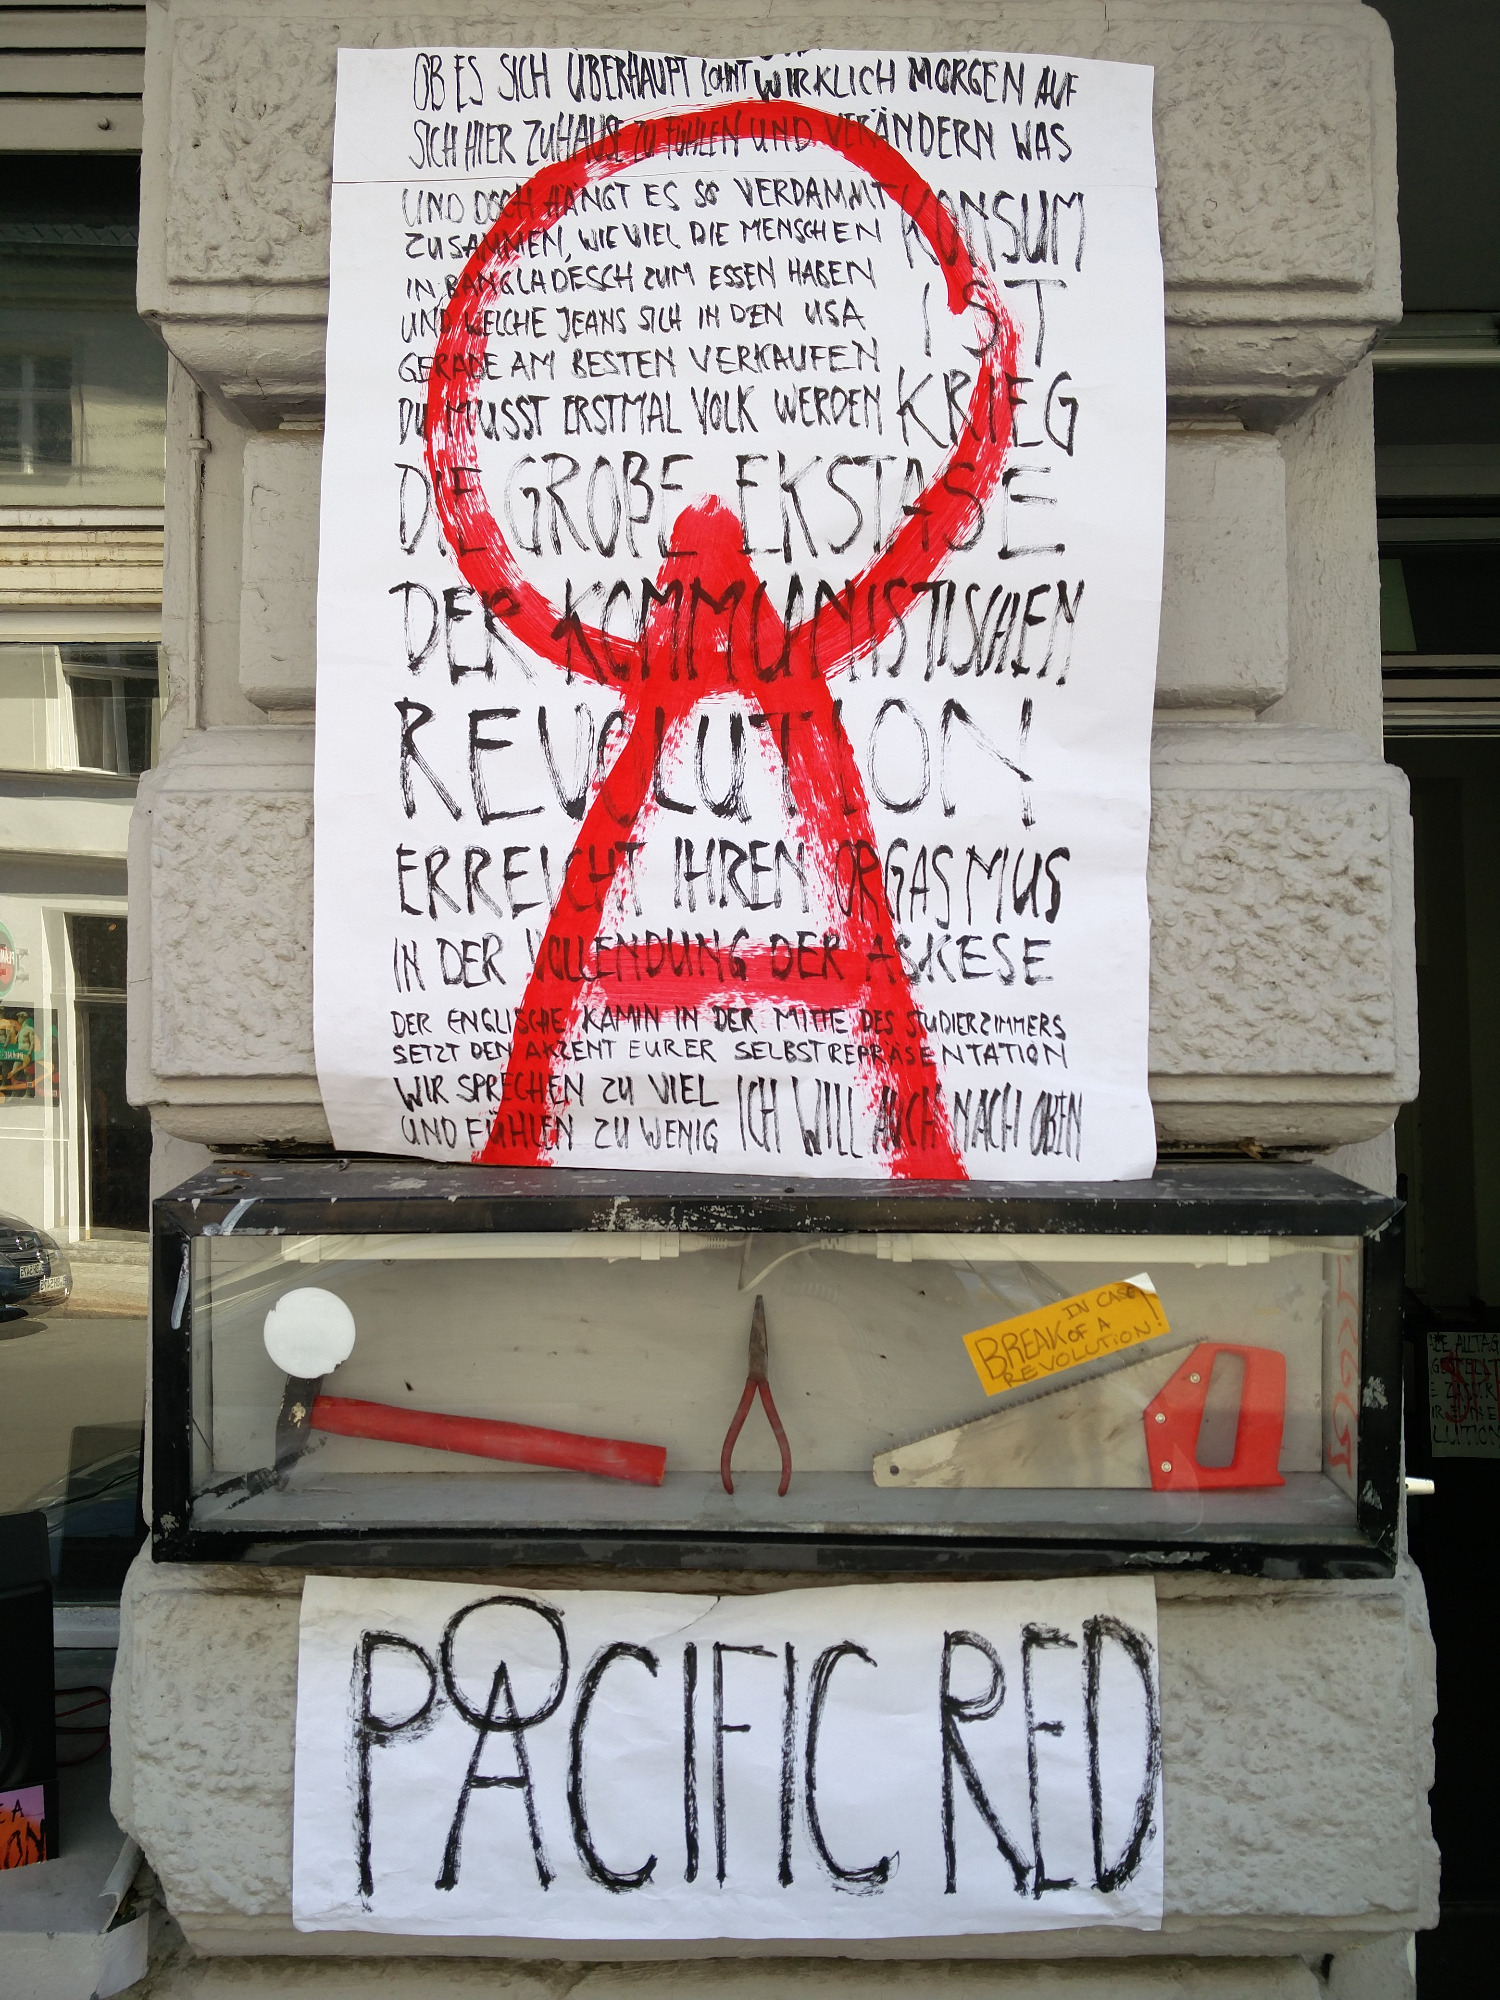 OB ES SICH ÜBERHAUPT LOHNT WIRKLICH MORGEN AUF
SICH HIER ZUHAUSE ZU FÜHLEN UND VERÄNDERN WAS
UND DOCH HÄNGT ES SO VERDAMMT
ZUSAMMEN, WIE VIEL DIE MENSCHEN
IN BANGLADESCH ZUM ESSEN HABEN
UND WELCHE JEANS SICH IN DEN USA
GERADE AM BESTEN VERKAUFEN
DU MUSST ERSTMAL VOLK WERDEN
KONSUM
IST
KRIEG
DIE GROßE EKSTASE
DER KOMMUNISTISCHEN
REVOLUTION
ERREICHT IHREN ORGASMUS
IN DER VOLLENDUNG DER ASKESE
DER ENGLISCHE KAMIN IN DER MITTE DES STUDIERZIMMERS
SETZT DEN AKZENT EURER SELBSTREPRÄSENTATION
WIR SPRECHEN ZU VIEL
UND FÜHLEN ZU WENIG
ICH WILL AUCH NACH OBEN
IN CASE
BREAK OF A
REVOLUTION!
PACIFIC RED